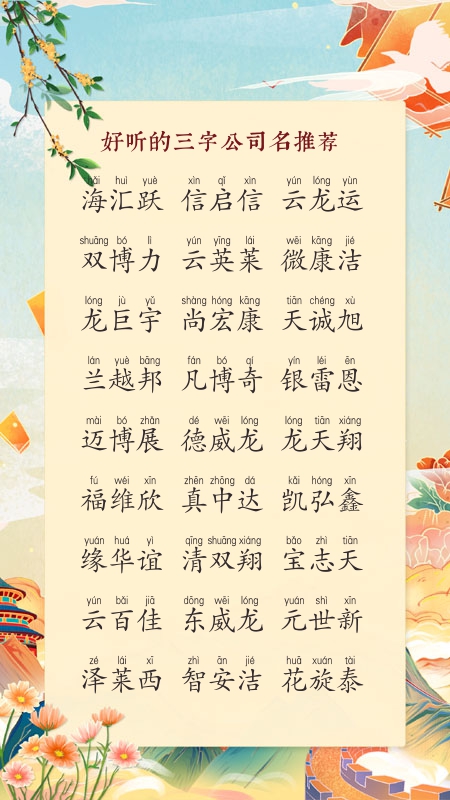 好听的三字公司名推荐
hǎi huì yuè xìn qǐ xìn yún lóng yùn
海汇跃 信启信 云龙运
shuāng bó lì yún yīng lái wēi kāng jié
双博力 云英莱 微康洁
lóng jù yǔ shàng hóng kāng tiān chéng xù
龙巨宇 尚宏康 天诚旭
lán yuè bāng fán bó qí yín léi ēn
兰越邦 凡博奇 银雷恩
mài bó zhǎn dé wēi lóng lóng tiān xiáng
迈博展 德威龙 龙天翔
fú wéi xīn zhēn zhōng dá kǎi hóng xīn
福维欣 真中达 凯弘鑫
yuán huá yì qīng shuāng xiáng bǎo zhì tiān
缘华谊 清双翔 宝志天
yún bǎi jiā dōng wēi lóng yuán shì xīn
云百佳 东威龙 元世新
zé lái xī zhì ān jié huā xuán tài
泽莱西 智安洁 花旋泰